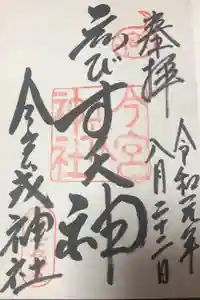 奉拝
令和元年
八月二十二日
ゑびす大神
今宮戎神社
今宮
神社